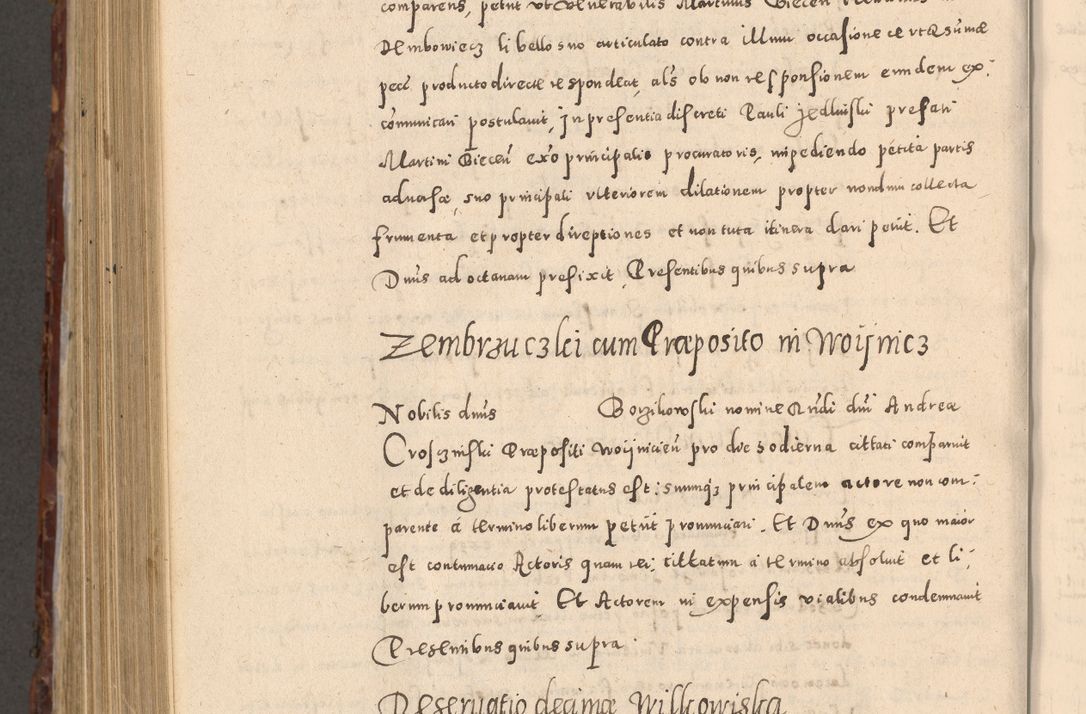 comparens, petiit ut Venerabilis Martinus Biecen
Dembowiecz libello suo articulato contra illum occasione certæ summæ
pecc producto directe respondeat, als ob non responsionem eundem ex:
communicari postulavit, In presentia discreti Pauli Jedlinski prefati
Martini Biecen ex̃o principalis procuratoris, impediendo petita partis
adversæ, suo principali ulteriorem dilationem propter nondum collecta
frumenta et propter direptiones et non tuta itinera dari petiit. Et
Dnus ad octavam prefixit, Presentibus quibus supra
Zembrzuczki cum Præposito in Woijnicz
Nobilis dnus Borzikowski nomine Rndi dni Andreæ
Croszinski Præpositi Woijnicien pro die hodierna cittati comparuit
et de diligentia protestatus est: suumqȝ principalem actore non com:
parente á termino liberum petiit pronunciari. Et Dnus ex quo maior
est contumacio Actoris quam rei: cittatum á termino absolvit et li:
berum pronunciavit Et Actorem in expensis vialibus condemnavit
Presentibus quibus supra
Reservatio decimæ Wilkowiska